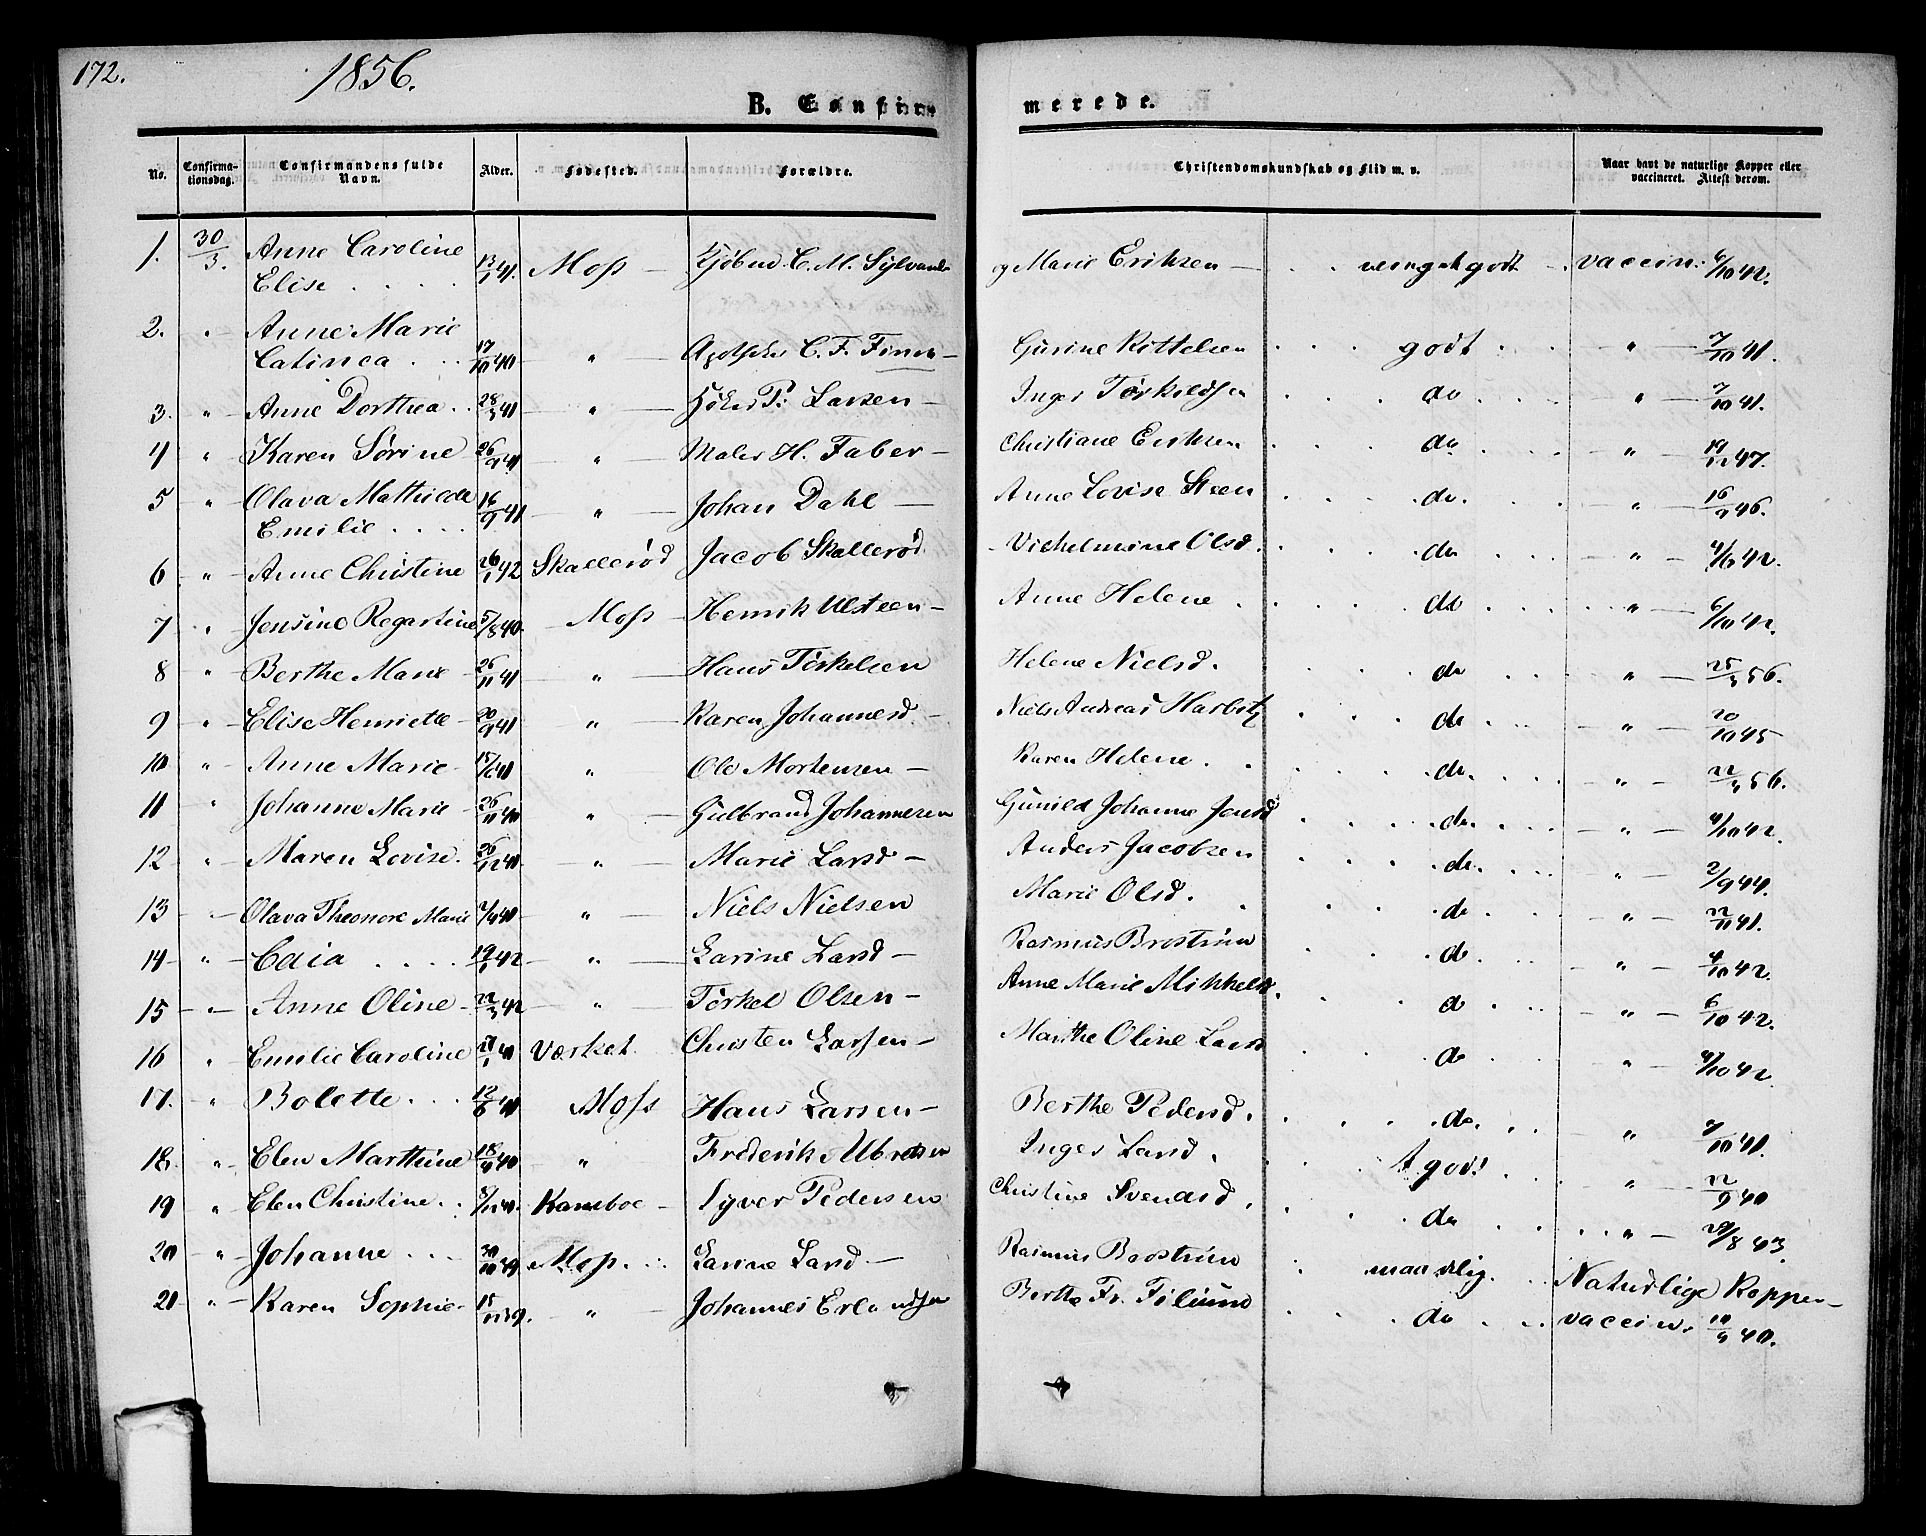 172. 1856.
B. Confirmerede.
No. Confirmationsdag. Confirmandens fulde Navn. Alder. Fødested. Forældre. Christendomskundskab og Flid m. v. Naar havt de naturlige Kopper eller vaccineret. Attest derom.
1. 30/3. Anne Caroline Elise . . . . 41. Moss — Kjøbmd. C. M. Sylvand og Marie Eriksen — . . meget godt — vaccin: 6/10 42.
2. " Anne Marie Catinca . . . 17/10 40 — " — C. F. Finn — Gurine Kittelsen . . . godt . . . — " — 7/10 41.
3. " Anne Dorthea . . 28/3 41 — " — Høker P. Larsen — Inger Torkeldsen . . . do . . . . " — 7/10 41.
4 " Karen Sørine 26/9 41 — " — Maler H. Faber — Christiane Eriksen . . . do . . . — " — 47.
5 " Olava Mathilde Emilie . . . . 16/9 41 — " — Johan Dahl — Anne Lovise Steen . . . do. . . . — " — 16/9 46.
6 " Anne Christine 26/1 42 Skallerød Jacob Skallerød. Vilhelmine Olsd. . . . do . . . — " — 42.
7 " Jensine Regartine 5/8 40. Moss — Henrik Ulsteen — Anne Helene . . . . do . . . . " — 6/10 42.
8 " Berthe Marie 26/11 41 — " — Hans Torkelsen Helene Nielsd. . . . do . . . " — 25/3 56.
9 " Elise Henriette — 20/9 41 " — Karen Johannesd. — Niels Andreas Harbitz . . . do . . . — " — 20/10 45
10 " Anne Marie — 41 " — Ole Mortensen — Karen Helene . . . . do. . . . — " — 22/3 56.
11 " Johanne Marie 26/11 40 " — Gulbrand Johannesen Gunild Johanne Jensd . . . do. . . . — " — 4/10 42.
12 " Maren Lovise. 26/12 41 — " — Marie Larsd — Anders Jacobsen . . . do. . . . " — 2/9 44.
13 " Olava Theonore Marie 41 — " — Niels Nielsen Marie Olsd. . . . do . . . — " — 22/11 41.
14 — " — Caia . . . . 19/1 42 — " — Larine Larsd — Rasmus Brostrüm . . . do . . . — " — 4/10 42.
15 — " — Anne Oline — 22/3 42 — " — Torkel Olsen — Anne Marie Mikkelsd. . . . do . . . — " — 6/10 42.
16 " Emilie Caroline 41 Værket. Christen Larsen — Marthe Oline Larsd . . . do . . . " — 4/10 42
17. " Bolette . . . 12/6 41 Moss Hans Larsen — Berthe Pedersd. . . . do. . . . — " 7/10 41.
18. " Elen Marthine 18/9 40 — " Frederik Albretsen Inger Larsd. . . . T. godt . . — " — 22/9 40
19 " Elen Christine . . 40. Kaneboe — Syver Pedersen Christine Svendsd. . . . do . . . . " — /8 43.
20 — " — Johanne . . . 30/10 39 — Moss. . . Larine Larsd — Rasmus Brostrüm . maadelig. . . Naturlige Kopper —
21 — " — Karen Sophie — 15/11 39. " — Johannes Erlandsen Berthe Fr. . . . do . . . vaccin. 40.